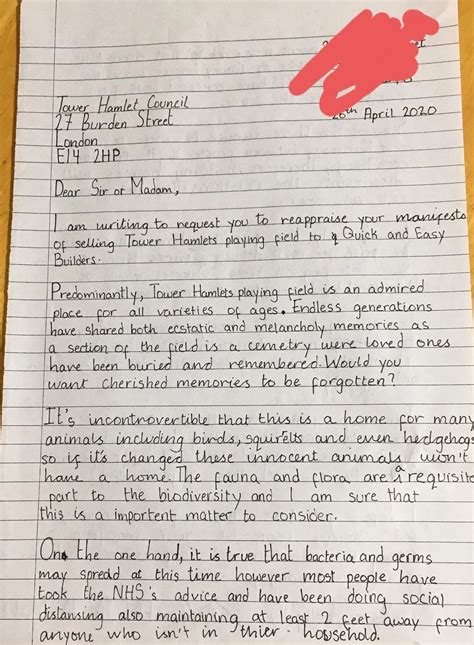 Tower Hamlet Council
27 Burden Street
London
E14 2HP
26th April 2020
Dear Sir or Madam,
I am writing to request you to reappraise your manifesto
of selling Tower Hamlets playing field to Quick and Easy
Builders.
Predominantly, Tower Hamlets playing field is an admired
place for all varieties of ages. Endless generations
have shared both ecstatic and melancholy memories as
a section of the field is a cemetry were loved ones
have been buried and remembered. Would you
want cherished memories to be forgotten?
It's incontrovertible that this is a home for many
animals including birds, squirells and even hedgehogs
so if it's changed these innocent animals won't
have a home. The fauna and flora are a requisite
part to the biodiversity and I am sure that
this is a importent matter to consider.
On the one hand, it is true that bacteria and germs
may spread at this time however most people have
took the NHS's advice and have been doing social
distansing also maintaining at least 2 feet away from
anyone who isn't in thier household.